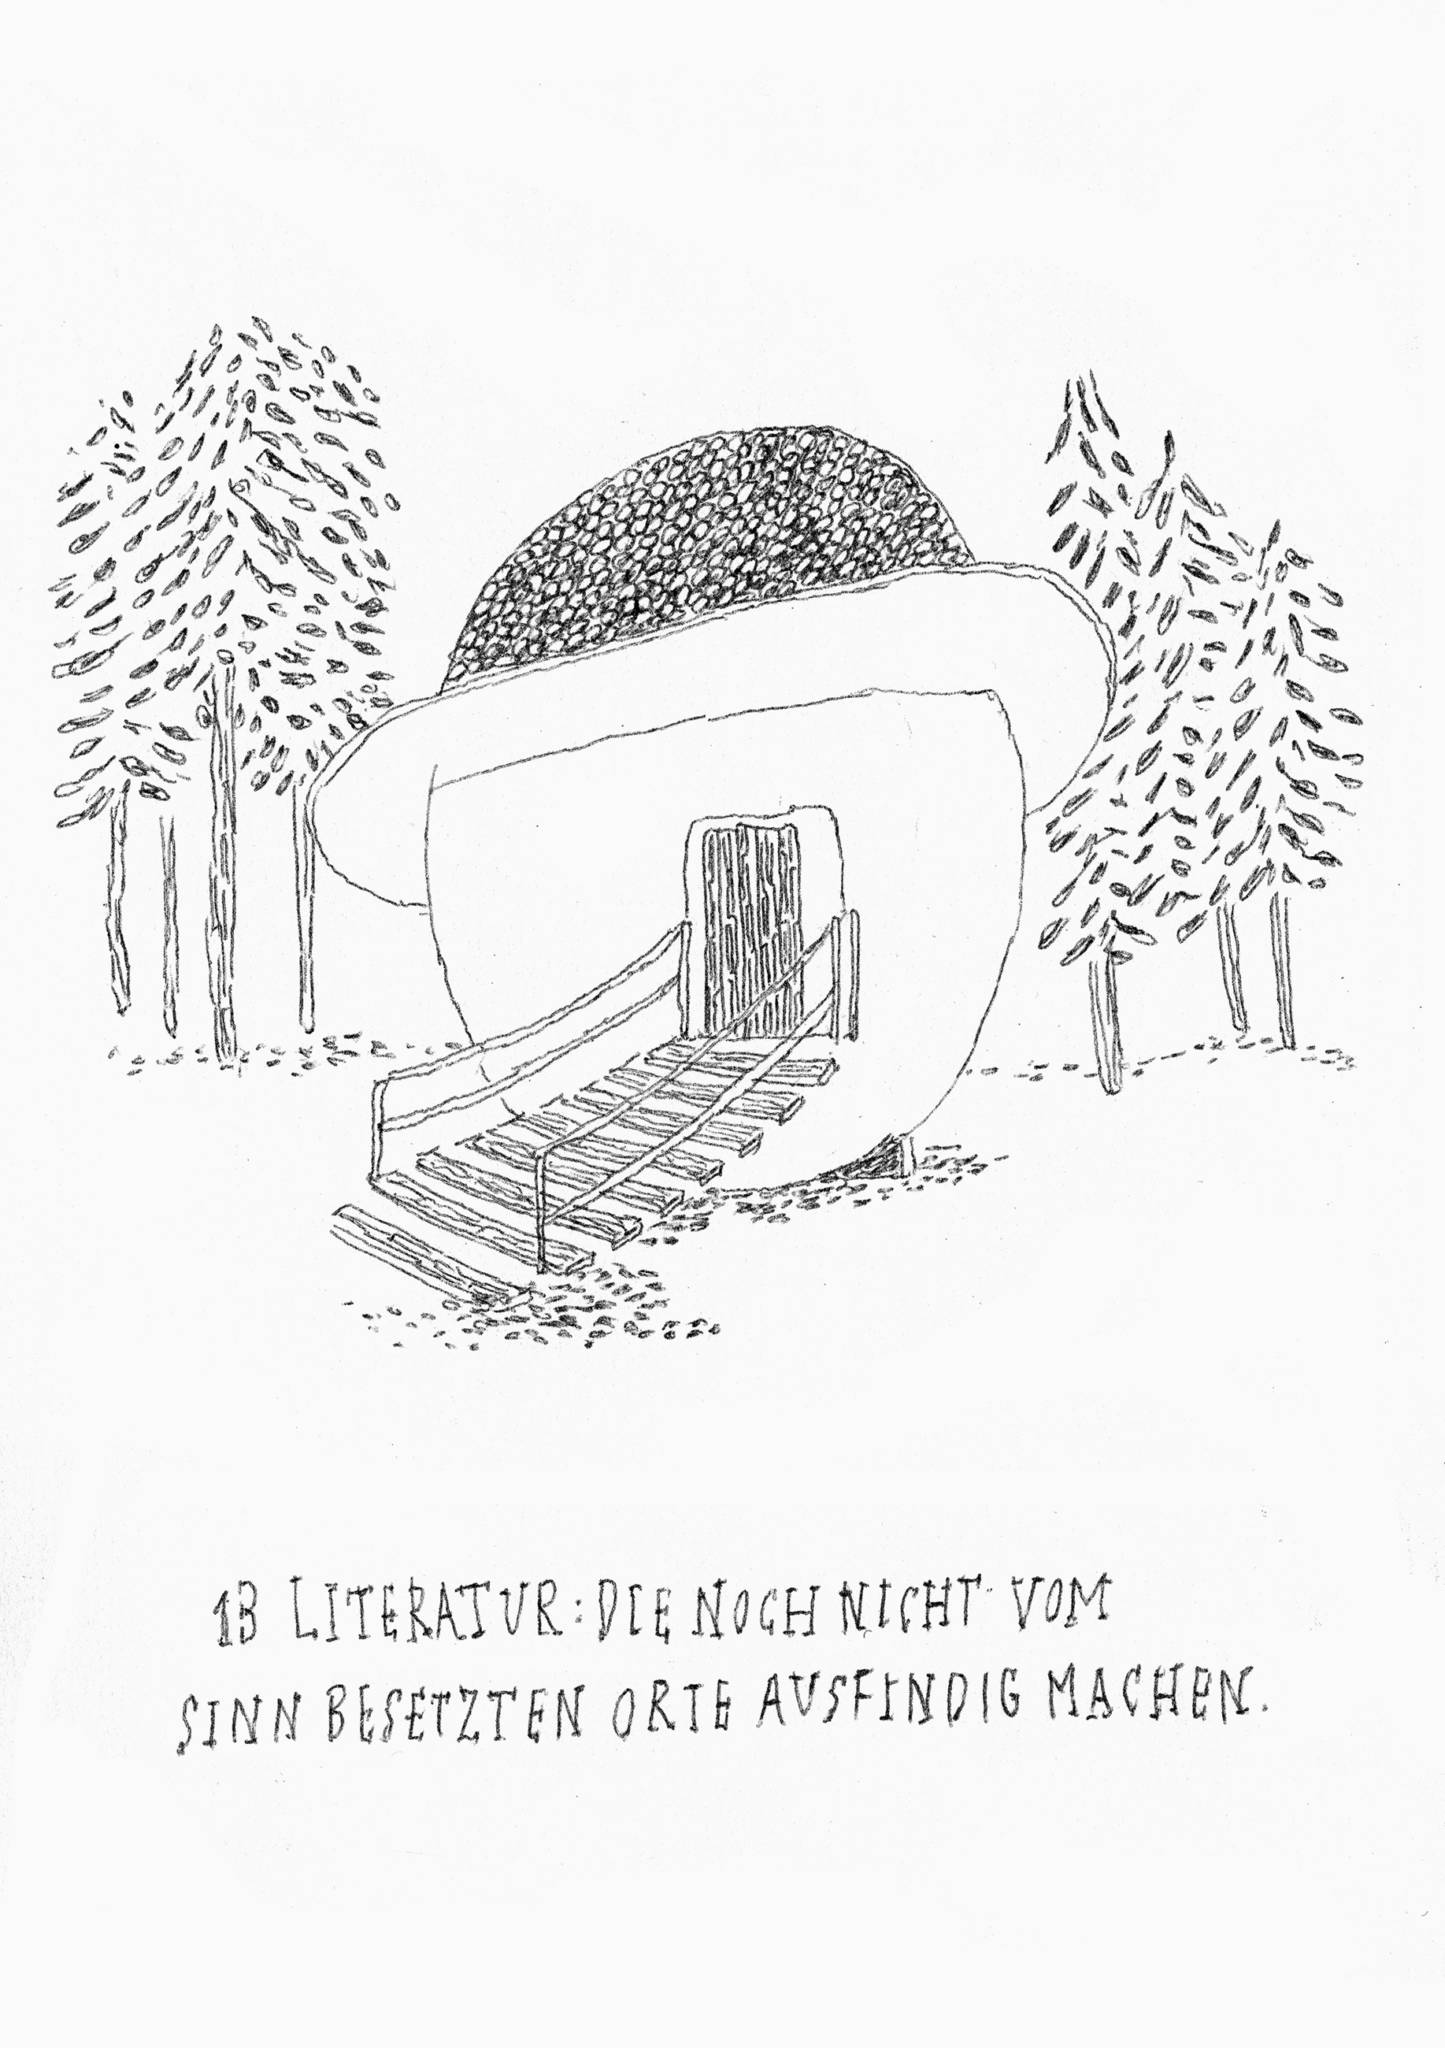 13 LITERATUR: DIE NOCH NICHT VOM
SINN BESETZTEN ORTE AUSFINDIG MACHEN.